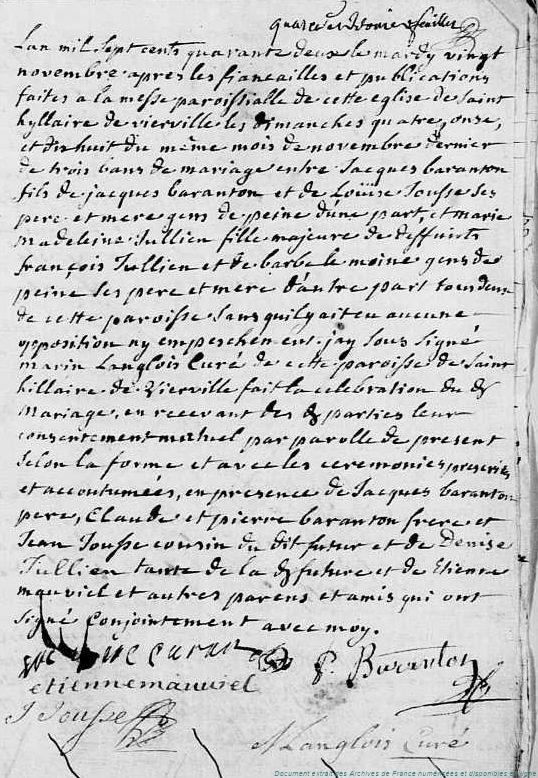 quatre et Douzie feuillet
Lan mil Sept cents quarante deux le mardy vingt
novembre apres les fiancailles et publications
faites a la messe paroissialle de cette eglise de Saint
hyllaire de vierville les dimanches quatre, onse,
et dix huit du même mois de novembre dernier
de trois bans de mariage entre Jacques baranton
fils de jacques baranton et de Loüise Jousse Ses
pere et mere gens de peine d'une part, et marie
Madeleine Jullien fille majeure de deffunts
françois Jullien et de barbe le moine gens de
peine Ses pere et mere d'autre part tous deux
de cette paroisse Sans quil y ait eu aucune
opposition ny empeschement. jay Sous Signé
marin Langlois Curé de cette paroisse de Saint
hillaire de Vierville fait la celebration du d.
Mariage, en recevant des d. parties leur
consentement mutuel par parolle de present
Selon la forme et avec les ceremonies prescrites
et accoutumées, en presence de Jacques baranton
pere, Claude et pierre baranton frere et
Jean Jousse cousin du dit futur et de Denise
Jullien tante de la d. future et de Etienne
mauviel et autres parens et amis qui ont
Signé Conjointement avec moy.
P. Baranton
etienne mauviel
J Jousse
M Langlois Curé
Document extrait des Archives de France numérisées et disponibles en ligne